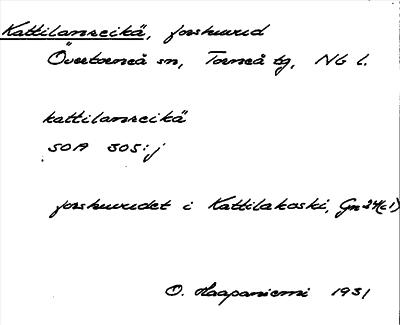 Kattilanreikä, forshuvud
Övertorneå sn, Torneå tg, NG l.
kattilanreikä
SOA 305:j
forshuvudet i Kattilakoski,
O. Haapaniemi 1931